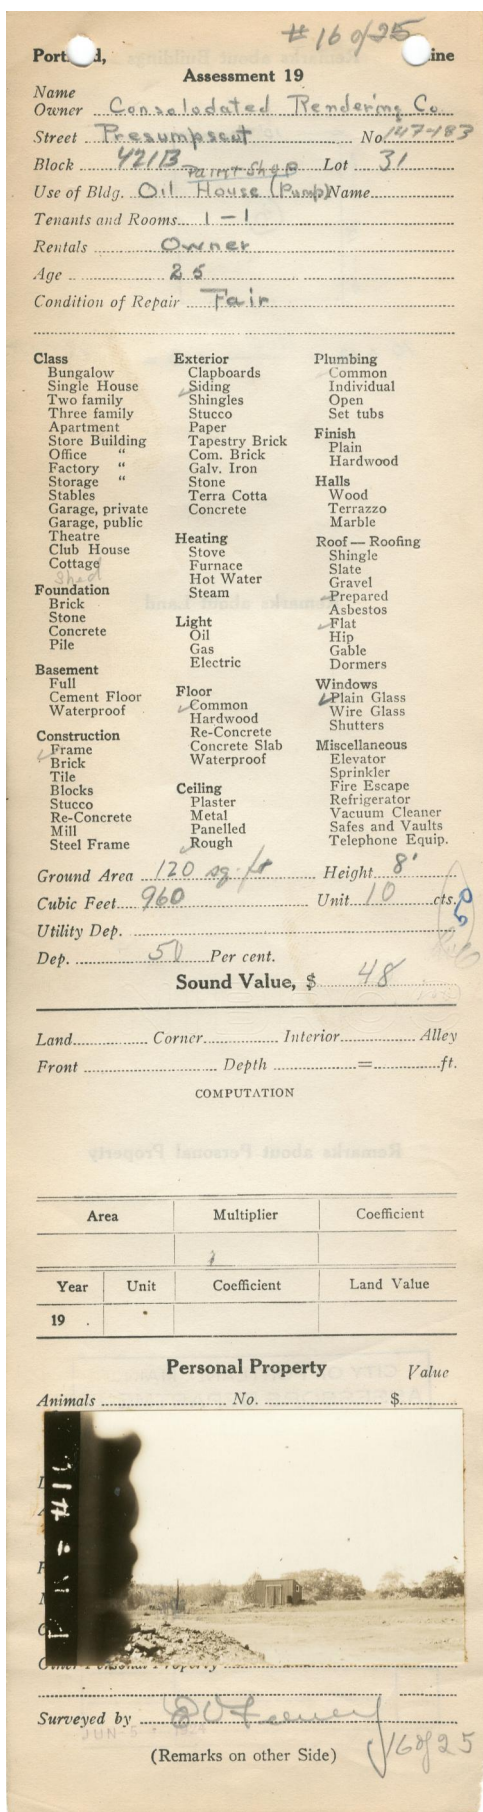 # 16 of 25
Portland, Maine
Assessment 19
Name
Owner Consolodated Rendering Co
Street Presumpscut No. 147-183
Block 421B Lot 31
Paint Shop
Use of Bldg. Oil House (Pump) Name
Tenants and Rooms 1-1
Rentals Owner
Age 25
Condition of Repair Fair
Class
Bungalow
Single House
Two family
Three family
Apartment
Store Building
Office "
Factory "
Storage "
Stables
Garage, private
Garage, public
Theatre
Club House
Cottage
Shed
Foundation
Brick
Stone
Concrete
Pile
Basement
Full
Cement Floor
Waterproof
Construction
Frame
Brick
Tile
Blocks
Stucco
Re-Concrete
Mill
Steel Frame
Exterior
Clapboards
Siding
Shingles
Stucco
Paper
Tapestry Brick
Com. Brick
Galv. Iron
Stone
Terra Cotta
Concrete
Heating
Stove
Furnace
Hot Water
Steam
Light
Oil
Gas
Electric
Floor
Common
Hardwood
Re-Concrete
Concrete Slab
Waterproof
Ceiling
Plaster
Metal
Panelled
Rough
Plumbing
Common
Individual
Open
Set tubs
Finish
Plain
Hardwood
Halls
Wood
Terrazzo
Marble
Roof — Roofing
Shingle
Slate
Gravel
Prepared
Asbestos
Flat
Hip
Gable
Dormers
Windows
Plain Glass
Wire Glass
Shutters
Miscellaneous
Elevator
Sprinkler
Fire Escape
Refrigerator
Vacuum Cleaner
Safes and Vaults
Telephone Equip.
Ground Area 120 sq. ft Height 8'
Cubic Feet 960 Unit 10 cts.
Utility Dep.
Dep. 50 Per cent.
Sound Value, $ 48
Land Corner Interior Alley
Front Depth = ft.
COMPUTATION
Area Multiplier Coefficient
Year Unit Coefficient Land Value
19 .
Personal Property Value
Animals No. $
Other Personal Property
Surveyed by
JUN-5
(Remarks on other Side)
16 of 25